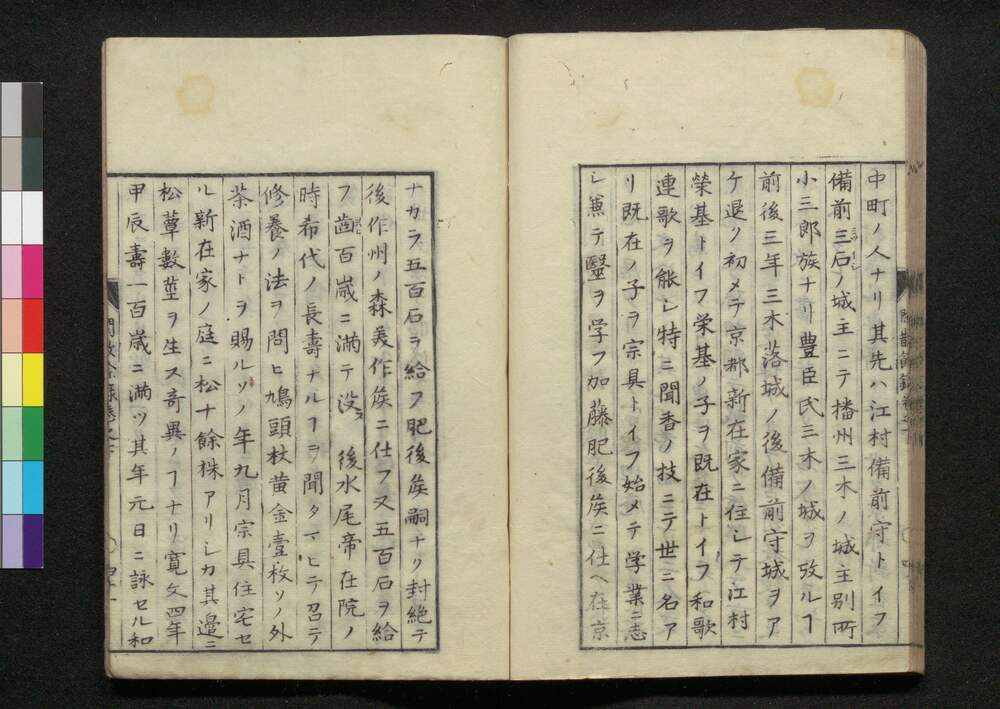 中町ノ人ナリ其先ハ江村備前守トイフ
備前三石ノ城主ニテ播州三木ノ城主別所
小三郎族ナリ豊臣氏三木ノ城ヲ攻ルヿ
前後三年三木落城ノ後備前守城ヲア
ケ退ノ初メテ京都新在家ニ住シテ江村
榮基トイフ栄基ノ子ヲ既在トイフ和歌
連歌ヲ能シ特ニ聞香ノ技ニテ世ニ名ア
リ既在ノ子ヲ宗具トイフ始メテ学業ニ志
シ兼テ醫ヲ学フ加藤肥後侯ニ仕ヘ在京
ナカラ五百石ヲ給フ肥後侯嗣ナク封絶テ
後作州ノ森美作侯ニ仕フ又五百石ヲ給
フ齒百歳ニ満テ没ス後水尾帝在院ノ
時希代ノ長壽ナルヿヲ聞タマヒテ召テ
修養ノ法ヲ問ヒ鳩頭杖黄金壹枚ソノ外
茶酒ナトヲ賜ルソノ年九月宗具住宅セ
ル新在家ノ庭ニ松十餘株アリシカ其邉ニ
松蕈數莖ヲ生ス奇異ノヿナリ寛文四年
甲辰壽一百歳ニ満ツ其年元日ニ詠セル和